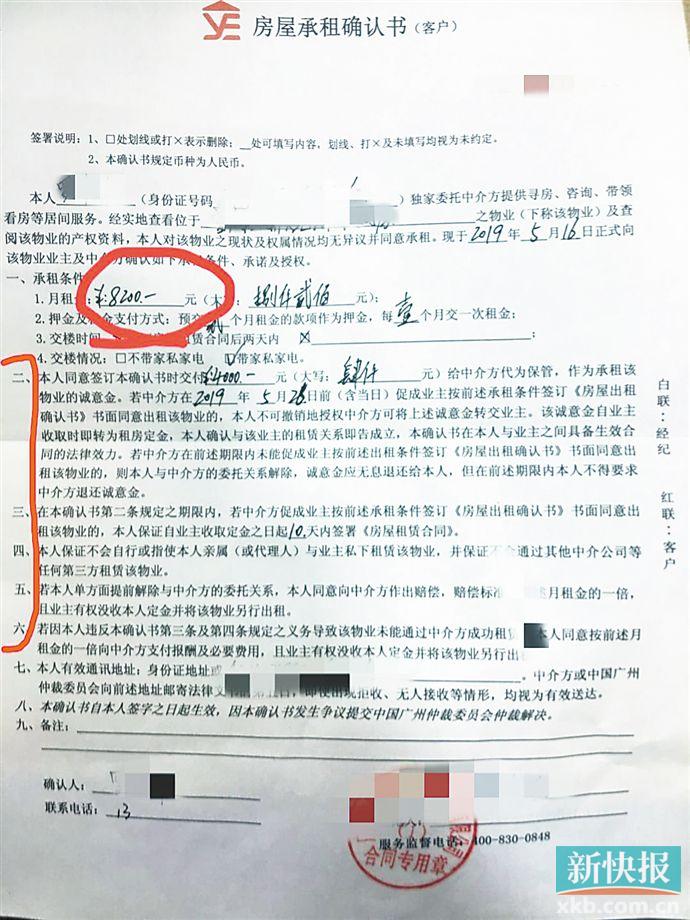 房屋承租确认书（客户）
签署说明：1、□处划线或打×表示删除；__处可填写内容，划线、打×及未填写均视为未约定。
2、本确认书规定币种为人民币。
本人（身份证号码）独家委托中介方提供寻房、咨询、带领
看房等居间服务。经实地查看位于之物业（下称该物业）及查
阅该物业的产权资料，本人对该物业之现状及权属情况均无异议并同意承租。现于2019年5月16日正式向
该物业业主及中介方确认如下承租条件、承诺及授权。
一、承租条件
1.月租金：¥:8200.-元（大写：捌仟贰佰元）；
2.押金及租金支付方式：预交贰个月租金的款项作为押金，每壹个月交一次租金；
3.交楼时间租赁合同后两天内
4.交楼情况：□不带家私家电 □带家私家电。
二、本人同意签订本确认书时交付¥4000.-元（大写：肆仟）给中介方代为保管，作为承租该
物业的诚意金。若中介方在2019年5月26日前（含当日）促成业主按前述承租条件签订《房屋出租
确认书》书面同意出租该物业的，本人不可撤销地授权中介方可将上述诚意金转交业主。该诚意金自业主
收取时即转为租房定金，本人确认与该业主的租赁关系即告成立，本确认书在本人与业主之间具备生效合
同的法律效力。若中介方在前述期限内未能促成业主按前述承租条件签订《房屋出租确认书》书面同意出
租该物业的，则本人与中介方的委托关系解除，诚意金应无息退还给本人，但在前述期限内本人不得要求
中介方退还诚意金。
三、在本确认书第二条规定之期限内，若中介方促成业主按前述承租条件签订《房屋出租确认书》书面同意出
租该物业的，本人保证自业主收取定金之日起10天内签署《房屋租赁合同》。
四、本人保证不会自行或指使本人亲属（或代理人）与业主私下租赁该物业，并保证不会通过其他中介公司等
任何第三方租赁该物业。
五、若本人单方面提前解除与中介方的委托关系，本人同意向中介方作出赔偿，赔偿标准月租金的一倍，
且业主有权没收本人定金并将该物业另行出租。
六、若因本人违反本确认书第三条及第四条规定之义务导致该物业未能通过中介方成功租赁本人同意按前述月
租金的一倍向中介方支付报酬及必要费用，且业主有权没收本人定金并将该物业另行出
七、本人有效通讯地址：身份证地址或。中介方或中国广州
仲裁委员会向前述地址邮寄法律文书的第五日，即使出现拒收、无人接收等情形，均视为有效送达。
八、本确认书自本人签字之日起生效，因本确认书发生争议提交中国广州仲裁委员会仲裁解决。
九、备注：
白联：经纪
红联：客户
确认人：
联系电话：13
服务监督电话：400-830-0848
合同专用章
新快报
xkb.com.cn